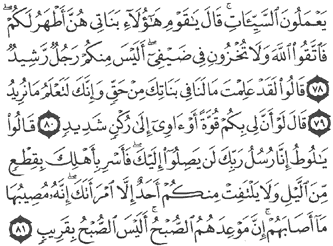 يَعْمَلُونَ ٱلسَّيِّـَٔاتِ ۚ قَالَ يَـٰقَوْمِ هَـٰٓؤُلَآءِ بَنَاتِى هُنَّ أَطْهَرُ لَكُمْ ۖ
فَٱتَّقُوا۟ ٱللَّهَ وَلَا تُخْزُونِ فِى ضَيْفِىٓ ۖ أَلَيْسَ مِنكُمْ رَجُلٌ رَّشِيدٌ
٧٨ قَالُوا۟ لَقَدْ عَلِمْتَ مَا لَنَا فِى بَنَاتِكَ مِنْ حَقٍّ وَإِنَّكَ لَتَعْلَمُ مَا نُرِيدُ
٧٩ قَالَ لَوْ أَنَّ لِى بِكُمْ قُوَّةً أَوْ ءَاوِىٓ إِلَىٰ رُكْنٍ شَدِيدٍ ٨٠ قَالُوا۟
يَـٰلُوطُ إِنَّا رُسُلُ رَبِّكَ لَن يَصِلُوٓا۟ إِلَيْكَ ۖ فَأَسْرِ بِأَهْلِكَ بِقِطْعٍ
مِّنَ ٱلَّيْلِ وَلَا يَلْتَفِتْ مِنكُمْ أَحَدٌ إِلَّا ٱمْرَأَتَكَ ۖ إِنَّهُۥ مُصِيبُهَا
مَآ أَصَابَهُمْ ۚ إِنَّ مَوْعِدَهُمُ ٱلصُّبْحُ ۚ أَلَيْسَ ٱلصُّبْحُ بِقَرِيبٍ ٨١